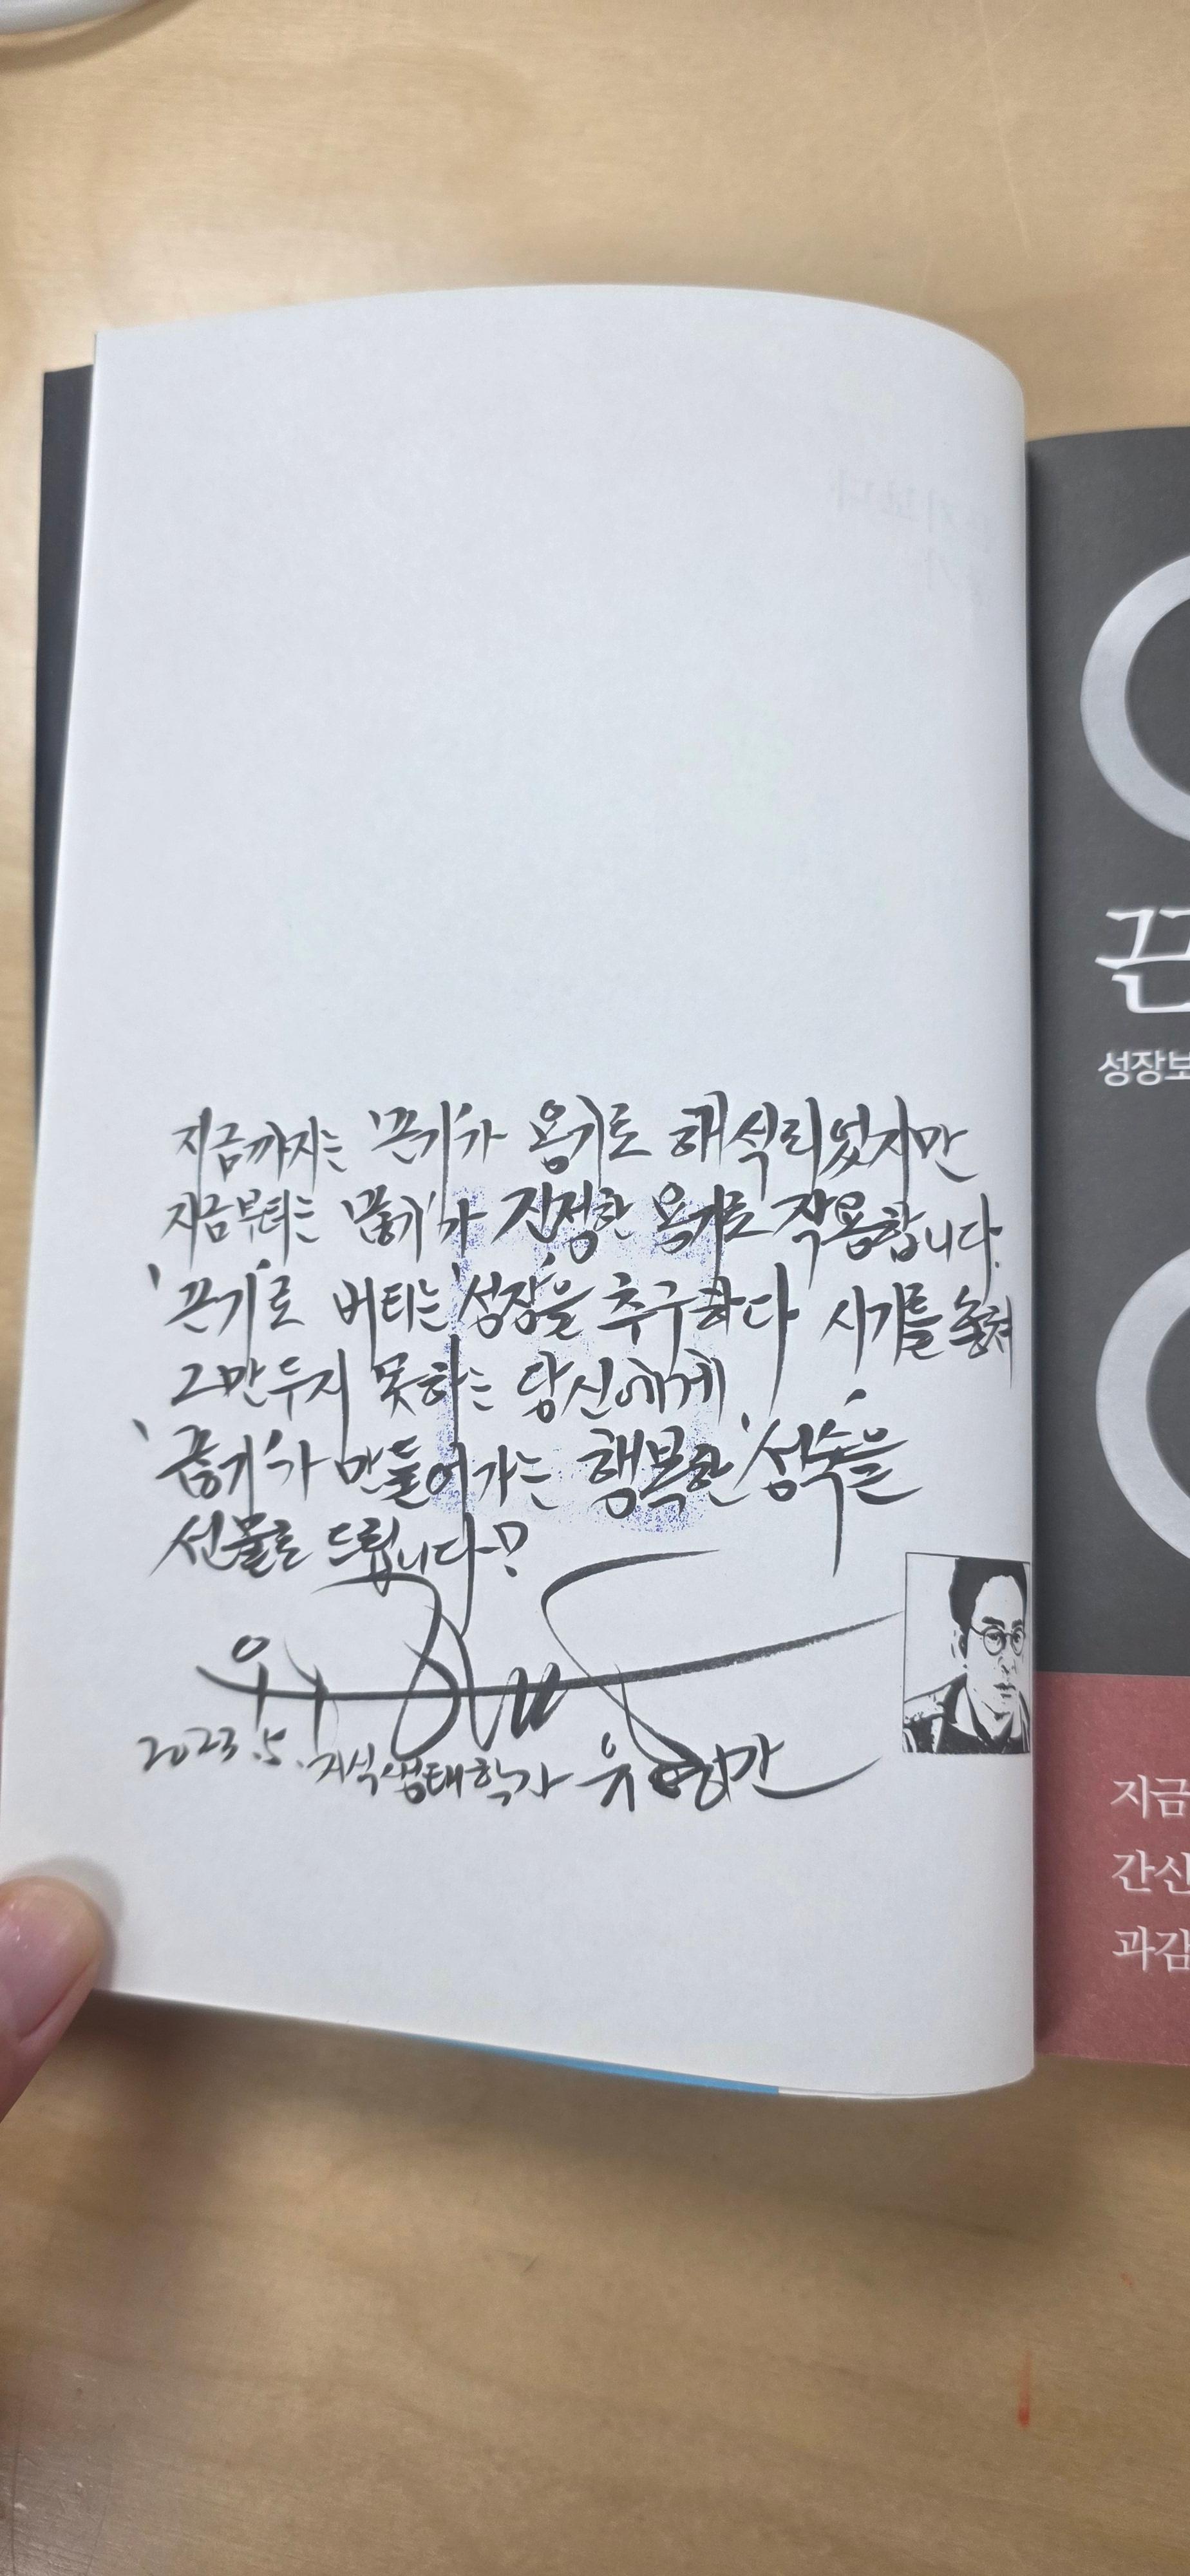 지금까지는 '끈기'가 용기로 해석되었지만
지금부터는 '끊기'가 진정한 용기로 작용합니다.
'끈기'로 버티는 '성장'을 추구하다 시기를 놓쳐
그만두지 못하는 당신에게
'끊기'가 만들어가는 행복한 '성숙'을
선물로 드립니다
2023.5. 지식생태학자 유영만
끈
성장보
지금
간신
과감